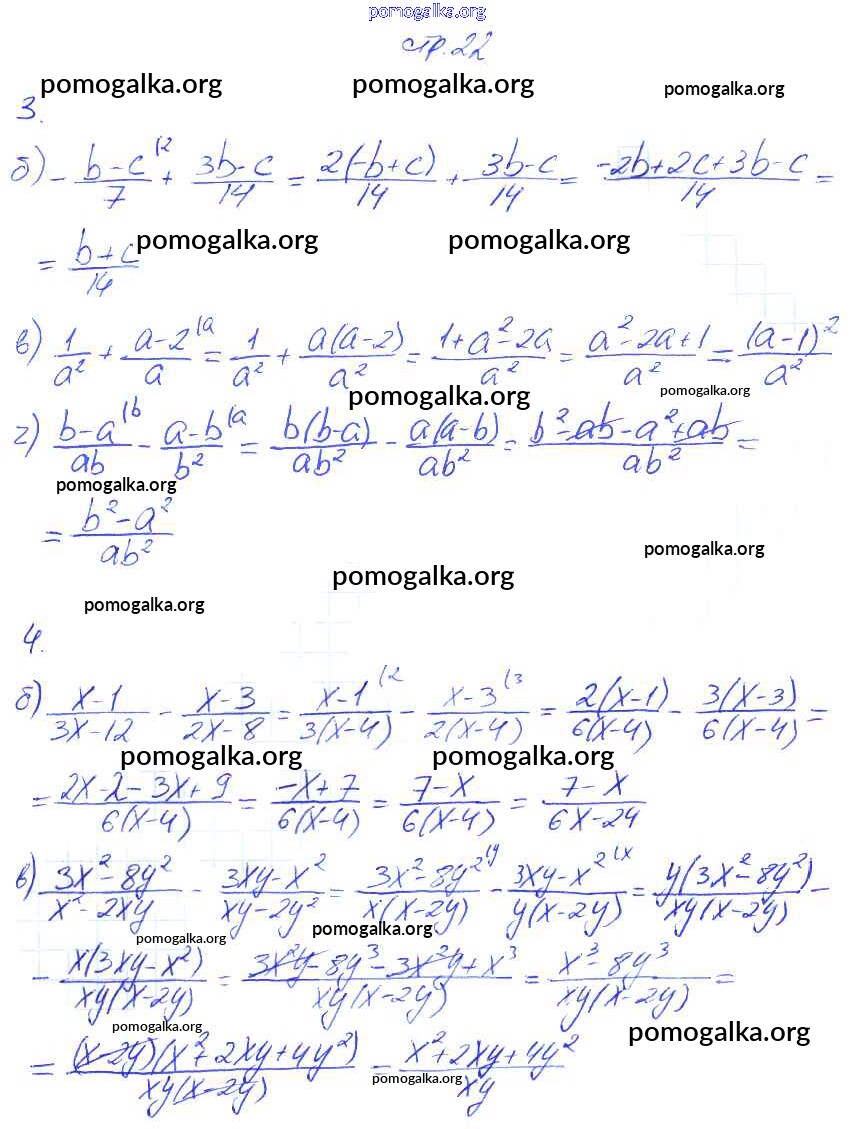 pomogalka.org
стр. 22
pomogalka.org pomogalka.org pomogalka.org
3.
б) - (b-c)/7 (2 + (3b-c)/14 = 2(-b+c)/14 + (3b-c)/14 = (-2b+2c+3b-c)/14 =
= (b+c)/14 pomogalka.org pomogalka.org
в) 1/a² + (a-2)/a (a = 1/a² + a(a-2)/a² = (1+a²-2a)/a² = (a²-2a+1)/a² = (a-1)²/a²
pomogalka.org pomogalka.org
г) (b-a)/ab (b - (a-b)/b² (a = b(b-a)/ab² - a(a-b)/ab² = (b²-ab-a²+ab)/ab² =
pomogalka.org
= (b²-a²)/ab²
pomogalka.org
pomogalka.org
pomogalka.org
4.
б) (x-1)/(3x-12) - (x-3)/(2x-8) = (x-1)/3(x-4) (2 - (x-3)/2(x-4) (3 = 2(x-1)/6(x-4) - 3(x-3)/6(x-4) =
pomogalka.org pomogalka.org
= (2x-2-3x+9)/6(x-4) = (-x+7)/6(x-4) = (7-x)/6(x-4) = (7-x)/(6x-24)
в) (3x²-8y²)/(x²-2xy) - (3xy-x²)/(xy-2y²) = (3x²-8y²)/x(x-2y) (y - (3xy-x²)/y(x-2y) (x = y(3x²-8y²)/xy(x-2y) -
pomogalka.org pomogalka.org
- x(3xy-x²)/xy(x-2y) = (3x²y-8y³-3x²y+x³)/xy(x-2y) = (x³-8y³)/xy(x-2y) =
pomogalka.org pomogalka.org
= (x-2y)(x²+2xy+4y²)/xy(x-2y) = (x²+2xy+4y²)/xy
pomogalka.org